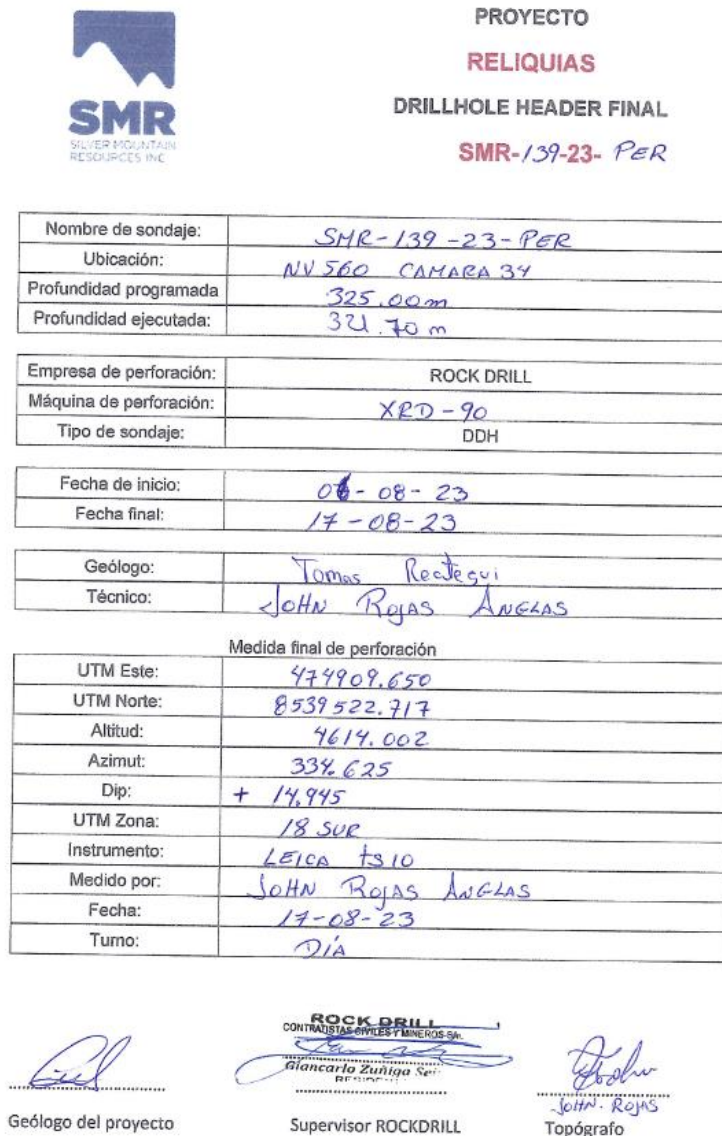 SMR
SILVER MOUNTAIN
RESOURCES INC
PROYECTO
RELIQUIAS
DRILLHOLE HEADER FINAL
SMR-139-23-PER
Nombre de sondaje: SMR-139-23-PER
Ubicación: NV 560 CAMARA 34
Profundidad programada 325.00m
Profundidad ejecutada: 321.70 m
Empresa de perforación: ROCK DRILL
Máquina de perforación: XRD-90
Tipo de sondaje: DDH
Fecha de inicio: -08-23
Fecha final: 17-08-23
Geólogo: Tomas Reategui
Técnico: JOHN ROJAS ANGLAS
Medida final de perforación
UTM Este: 474909.650
UTM Norte: 8539522.717
Altitud: 4614.002
Azimut: 334.625
Dip: + 14.945
UTM Zona: 18 SUR
Instrumento: LEICA ts10
Medido por: JOHN ROJAS ANGLAS
Fecha: 17-08-23
Turno: DÍA
ROCK DRILL
CONTRATISTAS CIVILES Y MINEROS
Giancarlo Zuñiga
JOHN. ROJAS
Geólogo del proyecto
Supervisor ROCKDRILL
Topógrafo